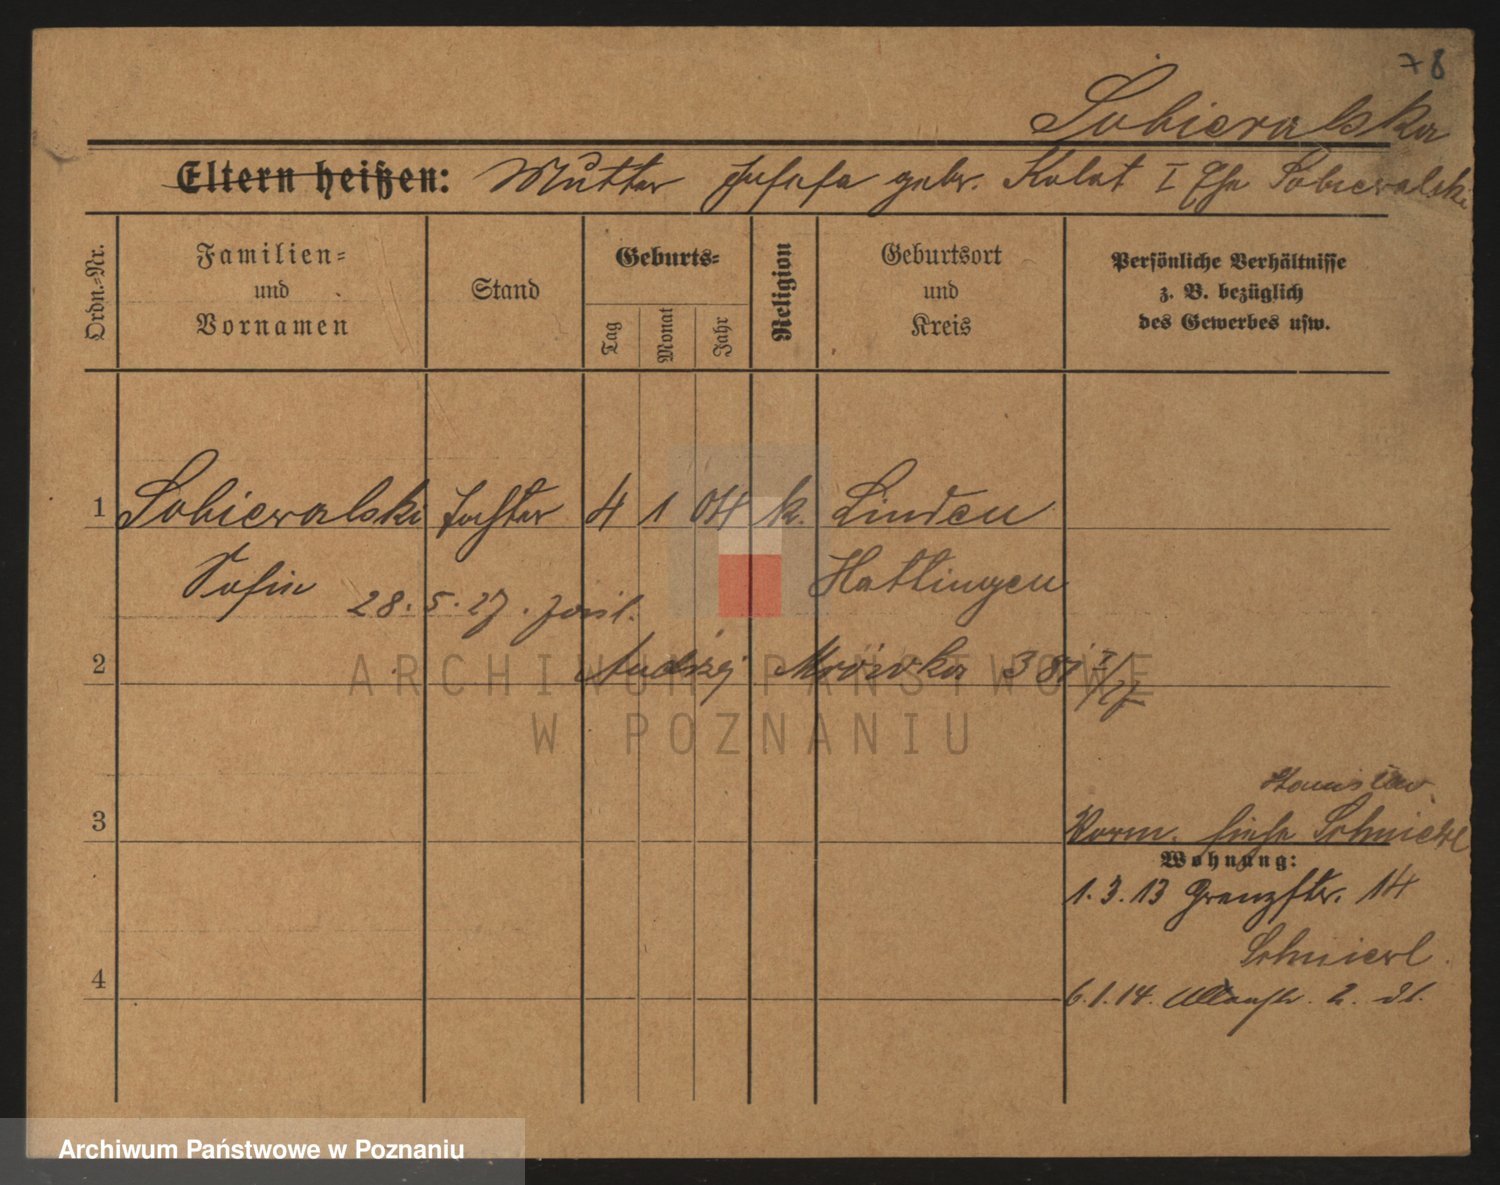 78
Sobieralska
Eltern heißen: Mutter Josefa gebr. Kolat I Ehe Sobieralski
Ordn.-Nr.
Familien-
und
Vornamen
Stand
Geburts-
Tag
Monat
Jahr
Religion
Geburtsort
und
Kreis
Persönliche Verhältnisse
z. B. bezüglich
des Gewerbes usw.
1 Sobieralski Tochter 4 1 04 k. Linden
Sofie Hattingen
28. 5. 27.
2 Andrzej Mrówka 3 81 3/27
ARCHIWUM PAŃSTWOWE
W POZNANIU
Stanislaw
3 Vorm. siehe Schmierl
Wohnung:
1. 3. 13 Grenzstr. 14
Schmierl.
4 6. 1. 14.
Archiwum Państwowe w Poznaniu